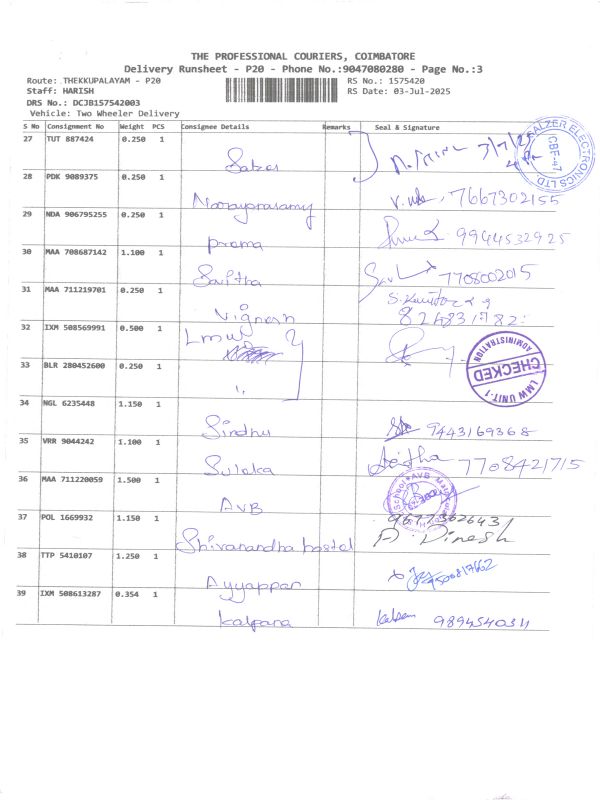 THE PROFESSIONAL COURIERS, COIMBATORE
Delivery Runsheet - P20 - Phone No.:9047080280 - Page No.:3
Route: THEKKUPALAYAM - P20 RS No.: 1575420
Staff: HARISH RS Date: 03-Jul-2025
DRS No.: DCJB157542003
Vehicle: Two Wheeler Delivery
S No Consignment No Weight PCS Consignee Details Remarks Seal & Signature
27 TUT 887424 0.250 1
28 PDK 9089375 0.250 1
7667302155
29 NDA 906795255 0.250 1
Prama 9944532925
30 MAA 708687142 1.100 1
7708002015
31 MAA 711219701 0.250 1
Vignesh
32 IXM 508569991 0.500 1
LMW
33 BLR 280452600 0.250 1
CHECKED
LMW UNIT-1
ADMINISTRATION
34 NGL 6235448 1.150 1
Sindhu 9443169368
35 VRR 9044242 1.100 1
Sulaka 7708421715
36 MAA 711220059 1.500 1
AVB
37 POL 1669932 1.150 1
Shivanandha hostel A. Dinesh
38 TTP 5410107 1.250 1
Ayyappan
39 IXM 508613287 0.354 1
Kalpana
SALZER ELECTRONICS LTD.
CBF-47